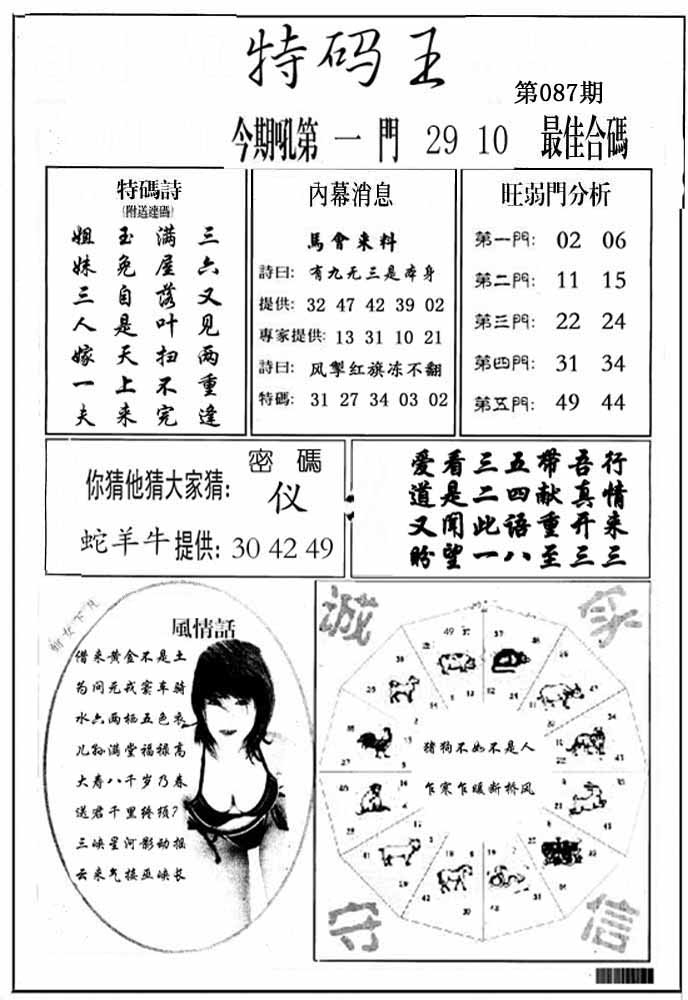 特码王
第087期
今期吼第一門 29 10 最佳合碼
特碼詩
(附送連碼)
三六又见两重逢
满屋落叶扫不完
玉兔自是天上来
姐妹三人嫁一夫
內幕消息
馬會來料
詩曰: 有九无三是本身
提供: 32 47 42 39 02
專家提供: 13 31 10 21
詩曰: 风掣红旗冻不翻
特碼: 31 27 34 03 02
旺弱門分析
第一門: 02 06
第二門: 11 15
第三門: 22 24
第四門: 31 34
第五門: 49 44
密碼
你猜他猜大家猜: 仪
蛇羊牛提供: 30 42 49
行情来三
吾真开三
带献重至
五四语八
三二此一
看是闻望
爱道又盼
風情話
借来黄金不是土
水六两栖五色衣
儿孙满堂福禄高
大寿八千岁乃春
三峡星河影动摇
云来气接巫峡长
诚
守
信
猪狗不如不是人
乍寒乍暖断桥风